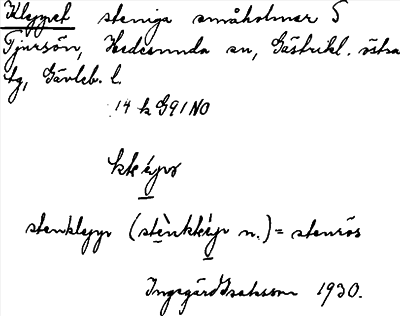 Klyppet steniga småholmar S
Tjursön, Hedesunda sn, Gästrikl. östra
tg, Gävleb. l.
14 h G91 NO
stenklypp (n.) = stenrös
Ingegärd Isaksson 1930.